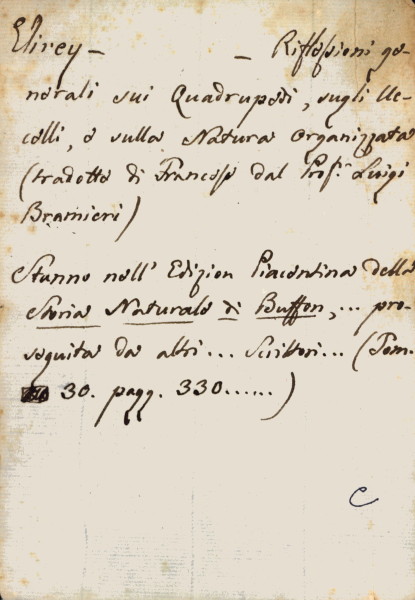 Virey — — Riflessioni ge-
nerali sui Quadrupedi, sugli Uc-
celli, e sulla Natura Organizzata
(tradotte di Francese dal Prof.r Luigi
Bramieri)
Stanno nell' Edizion Piacentina della
Storia Naturale di Buffon, ... pro-
seguita da altri ... Scrittori ... (Tom.
30. pagg. 330......)
C